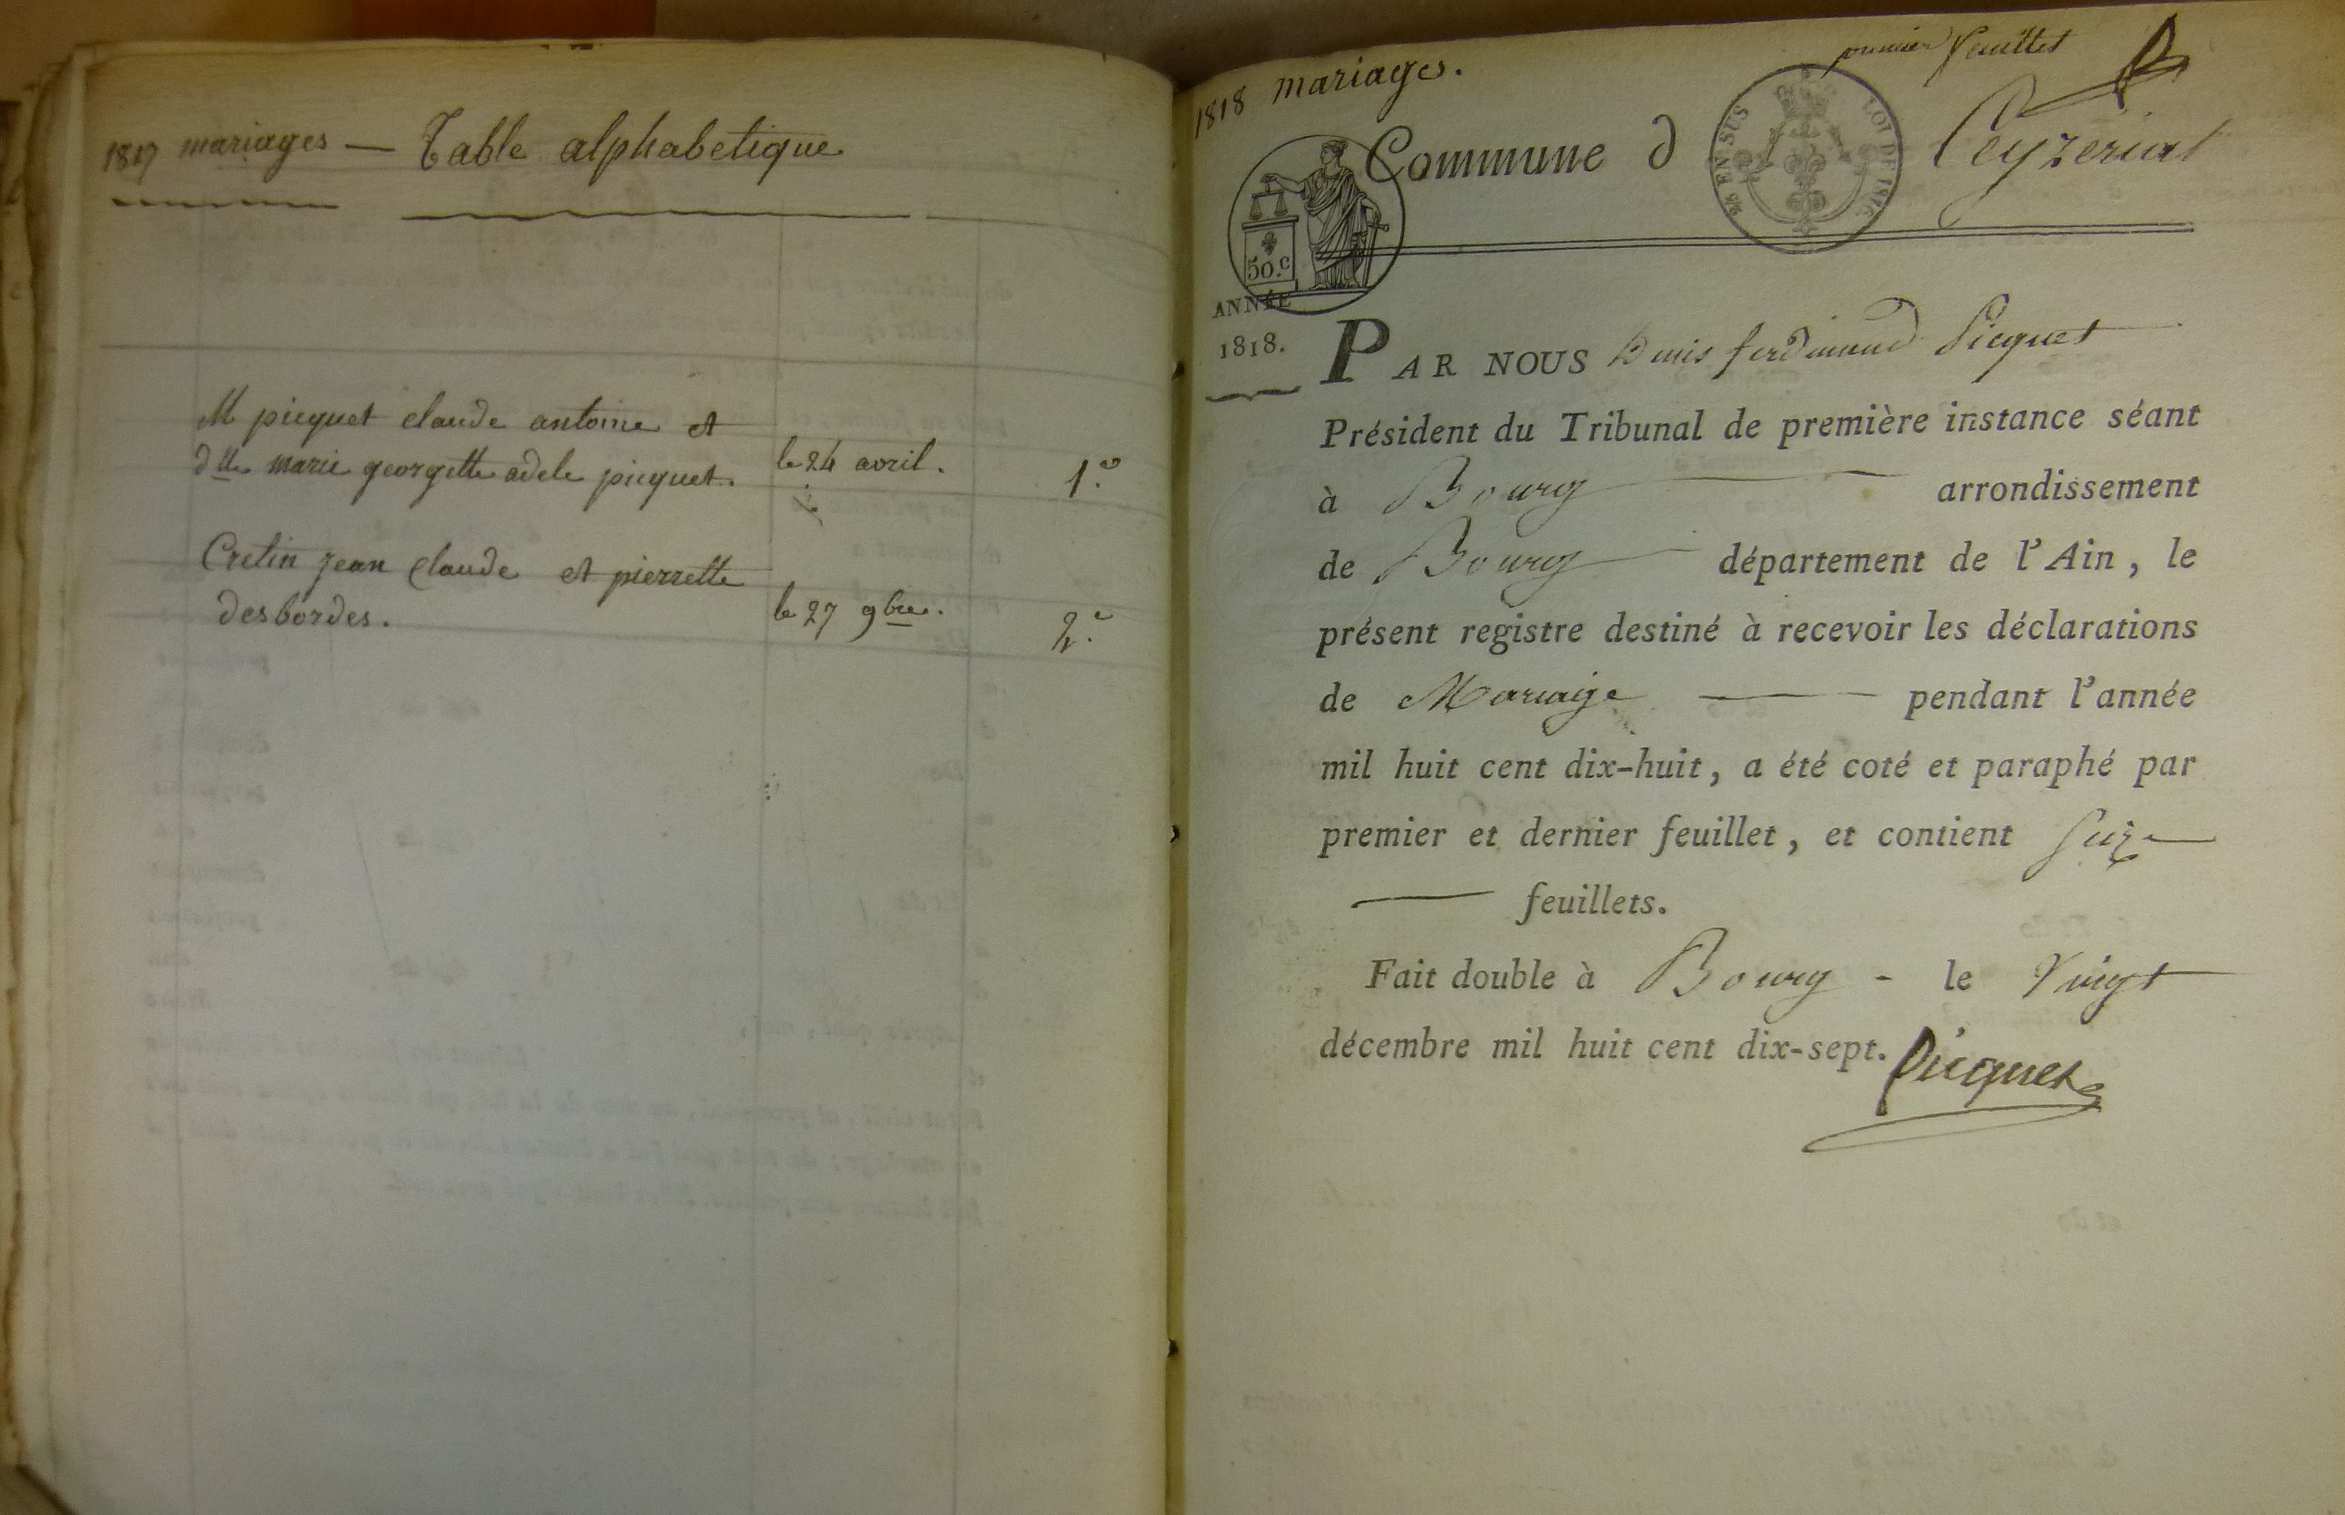 1817 mariages — Table alphabetique
M picquet claude antoine et
dlle marie georgette adele picquet. le 24 avril. 1.o
Cretin jean claude et pierrette
desbordes. le 27 9bre. 2.e
1818 mariages.
premier feuillet
Commune d Ceyzeriat
EN SUS LOI DE 1816
50.c
ANNÉE
1818.
PAR NOUS Denis ferdinand Picquet
Président du Tribunal de première instance séant
à Bourg arrondissement
de Bourg département de l'Ain, le
présent registre destiné à recevoir les déclarations
de Mariage pendant l'année
mil huit cent dix-huit, a été coté et paraphé par
premier et dernier feuillet, et contient
feuillets.
Fait double à Bourg - le Vingt
décembre mil huit cent dix-sept. Picquet